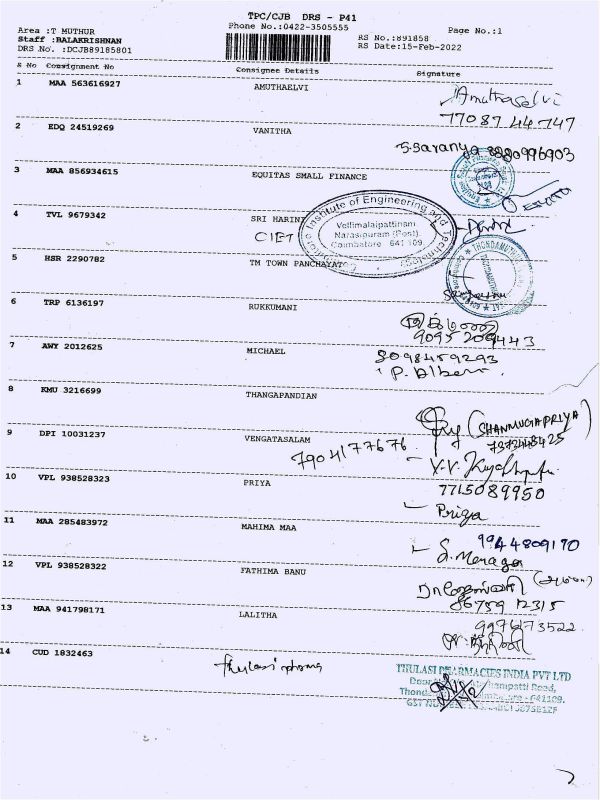 TPC/CJB DRS - P41
Phone No.:0422-3505555
Area :T MUTHUR
Staff :BALAKRISHNAN
DRS No. :DCJB89185801
RS No.:891858
RS Date:15-Feb-2022
Page No.:1
S No Consignment No Consignee Details Signature
1 MAA 563616927 AMUTHAELVI Amuthaselvi
77087 44747
2 EDQ 24519269 VANITHA S.Saranya 8880996903
3 MAA 856934615 EQUITAS SMALL FINANCE
4 TVL 9679342 SRI HARINI
CIET
Institute of Engineering and
Vellimalaipattinam
Narasipuram (Post)
Coimbatore 641 109
5 HSR 2290782 TM TOWN PANCHAYAT
6 TRP 6136197 RUKKUMANI
9095209443
7 AWY 2012625 MICHAEL 8098459293
P. Alber
8 KMU 3216699 THANGAPANDIAN
(SHANMUGAPRIYA)
7373448425
9 DPI 10031237 VENGATASALAM 7904177676
10 VPL 938528323 PRIYA 7715089950
Priya
11 MAA 285483972 MAHIMA MAA 9944809170
S. Menaga
12 VPL 938528322 FATHIMA BANU
86759 12315
13 MAA 941798171 LALITHA 9976173522
14 CUD 1832463 Thulasi pharma
THULASI PHARMACIES INDIA PVT LTD